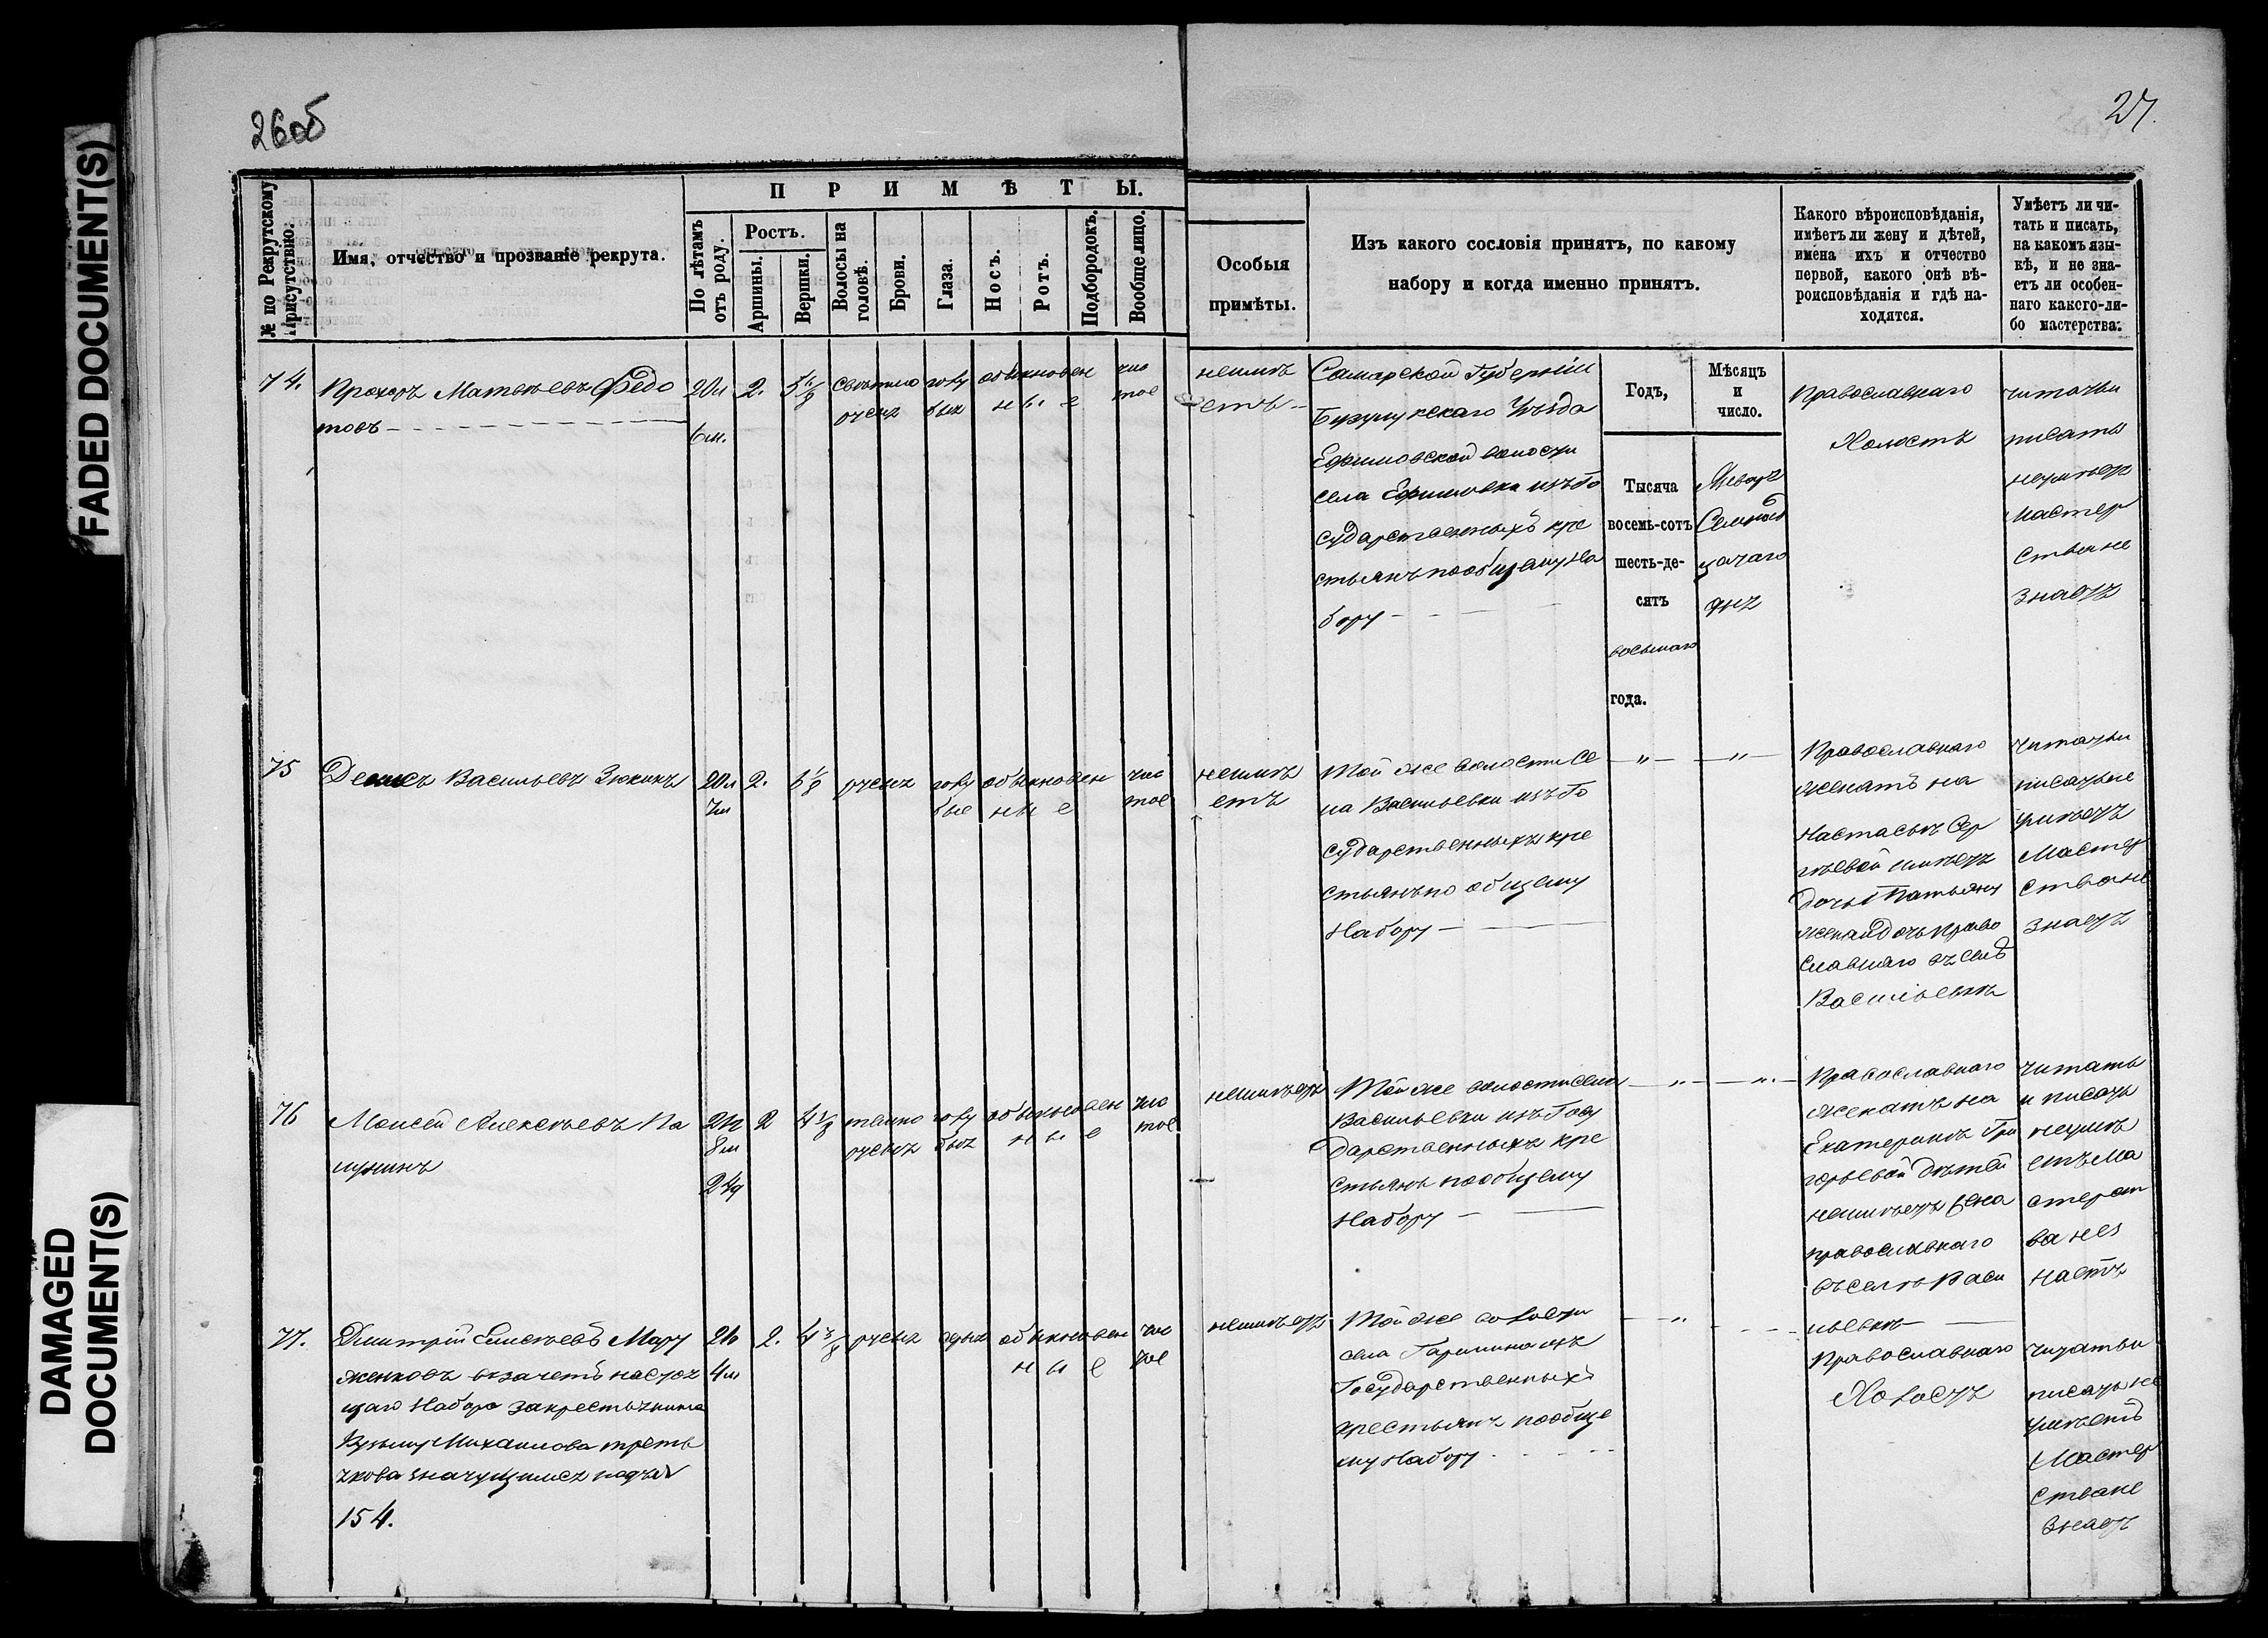 FADED DOCUMENT(S)
DAMAGED
DOCUMENT(S)
26об
27.
№ по Рекрутскому
Присутствію.
Имя, отчество и прозваніе рекрута.
ПРИМѢТЫ.
По лѣтамъ
отъ роду.
Ростъ.
Аршины.
Вершки.
Волосы на
головѣ.
Брови.
Глаза.
Носъ.
Ротъ.
Подбородокъ.
Вообще лицо.
Особыя
примѣты.
Изъ какого сословія принятъ, по какому
набору и когда именно принятъ.
Какого вѣроисповѣданія,
имѣетъ ли жену и дѣтей,
имена ихъ и отчество
первой, какого онѣ вѣ-
роисповѣданія и гдѣ на-
ходятся.
Умѣетъ ли чи-
тать и писать,
на какомъ язы-
кѣ, и не зна-
етъ ли особен-
наго какого-ли-
бо мастерства.
74.
Прохоръ Матвѣевъ Федо
товъ
20л
6м.
2.
свѣтло
русых
голу
бых
обыкновен
ные
чис
тое
неимѣ
етъ
Самарской Губерніи
Бузулукскаго Уѣзда
Ефимовской волости
села Ефимовки изъ Го
сударственныхъ кре
стьянъ по общему на
бору
Годъ,
Мѣсяцъ
и
число.
Тысяча
восемь-сотъ
шесть-де-
сятъ
восьмаго
года.
Январ
Семнад
цатаго
дня
Православнаго
Холостъ
читать и
писать
неумѣетъ
мастер
ства не
знаетъ
75
Денисъ Васильевъ Зюкинъ
20л
7м
2.
русых
голу
бые
обыкновен
ные
чис
тое
неимѣ
етъ
Той же волости се
ла Васильевки изъ Го
сударственныхъ кре
стьянъ по общему
Набору
"
"
Православнаго
женатъ на
Настасьѣ Сер
гѣевой имѣетъ
дочь Татьяну
жена и дочь право
славнаго въ селѣ
Васильевкѣ
читать и
писать не
умѣетъ
Мастер
ства не
знаетъ
76
Моисей Алексѣевъ Па
8м
24д
2
темно
русых
голу
бых
обыкновен
ные
чис
тое
неимѣетъ
Той же волости села
Васильевки изъ Госу
дарственныхъ кре
стьянъ по общему
Набору
"
"
Православнаго
женатъ на
Екатеринѣ Гри
горьевой дѣтей
неимѣетъ жена
православнаго
въ селѣ Васи
льевкѣ
читать
и писать
неумѣ
етъ Ма
стерст
ва нез
наетъ
77.
Дмитрій Елисѣевъ Мару
женковъ въ зачетъ настоя
щаго Набора за крестьянина
Кузьму Михайлова треть
якова значущимся подъ №
154.
4м
2.
русых
обыкновен
ные
чис
тое
неимѣетъ
Той же волости
села Гаршина изъ
Государственныхъ
крестьянъ по обще
му Набору
"
Православнаго
Холостъ
читать и
писать не
умѣетъ
Мастер
ства не
знаетъ